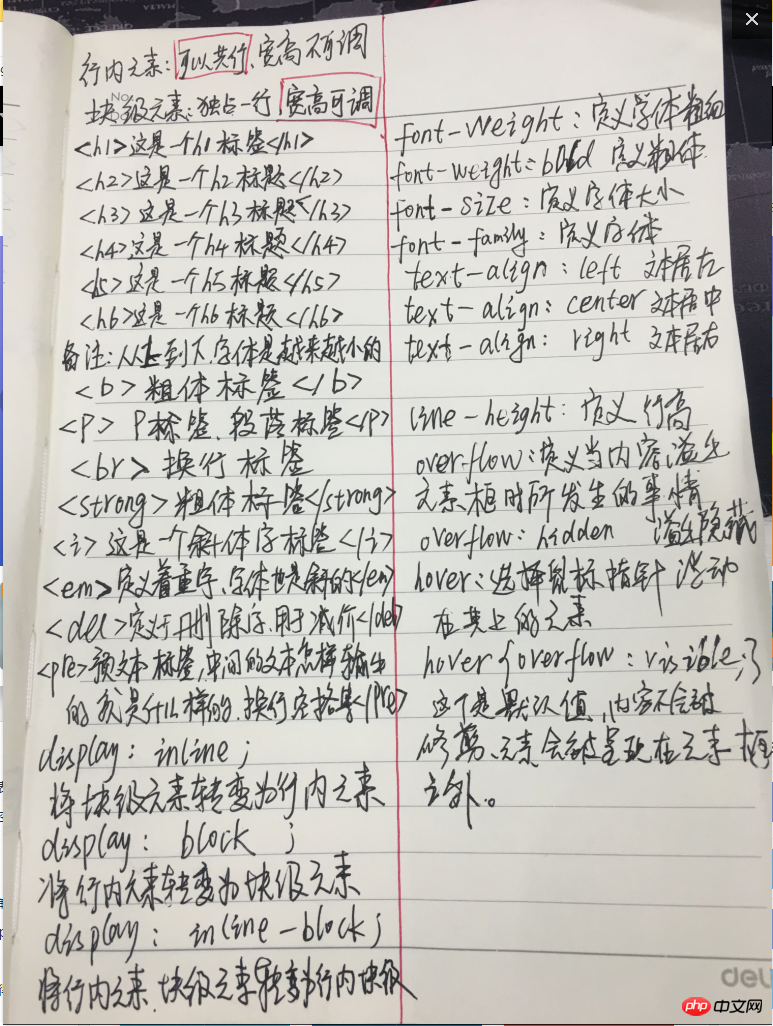 行内元素:可以共行、宽高不可调
块级元素:独占一行 宽高可调
<h1>这是一个h1标签</h1>
<h2>这是一个h2标题</h2>
<h3>这是一个h3标题</h3>
<h4>这是一个h4标题</h4>
<h5>这是一个h5标题</h5>
<h6>这是一个h6标题</h6>
备注:从上到下,字体是越来越小的
<b>粗体标签</b>
<P>P标签,段落标签</P>
<br>换行标签
<strong>粗体标签</strong>
<i>这是一个斜体字标签</i>
<em>定义着重字,字体也是斜的</em>
<del>定义于删除字,用于减价</del>
<pre>预文本标签,中间的文本怎样输出
的就是什么样的,换行空格等</pre>
display: inline;
将块级元素转变为行内元素
display: block ;
将行内元素转变为块级元素
display: inline-block;
将行内元素,块级元素转变为行内块级
font-weight:定义字体粗细
font-weight:bold 定义粗体
font-size:定义字体大小
font-family:定义字体
text-align:left 文本居左
text-align:center 文本居中
text-align: right 文本居右
line-height:定义行高
overflow:定义当内容溢出
元素框时所发生的事情
overflow: hidden 溢出隐藏
hover:选择鼠标指针浮动
在其上的元素
hover{overflow:visible;}
这个是默认值,内容不会被
修剪,元素会被呈现在元素框
之外。
deli
php 中文网